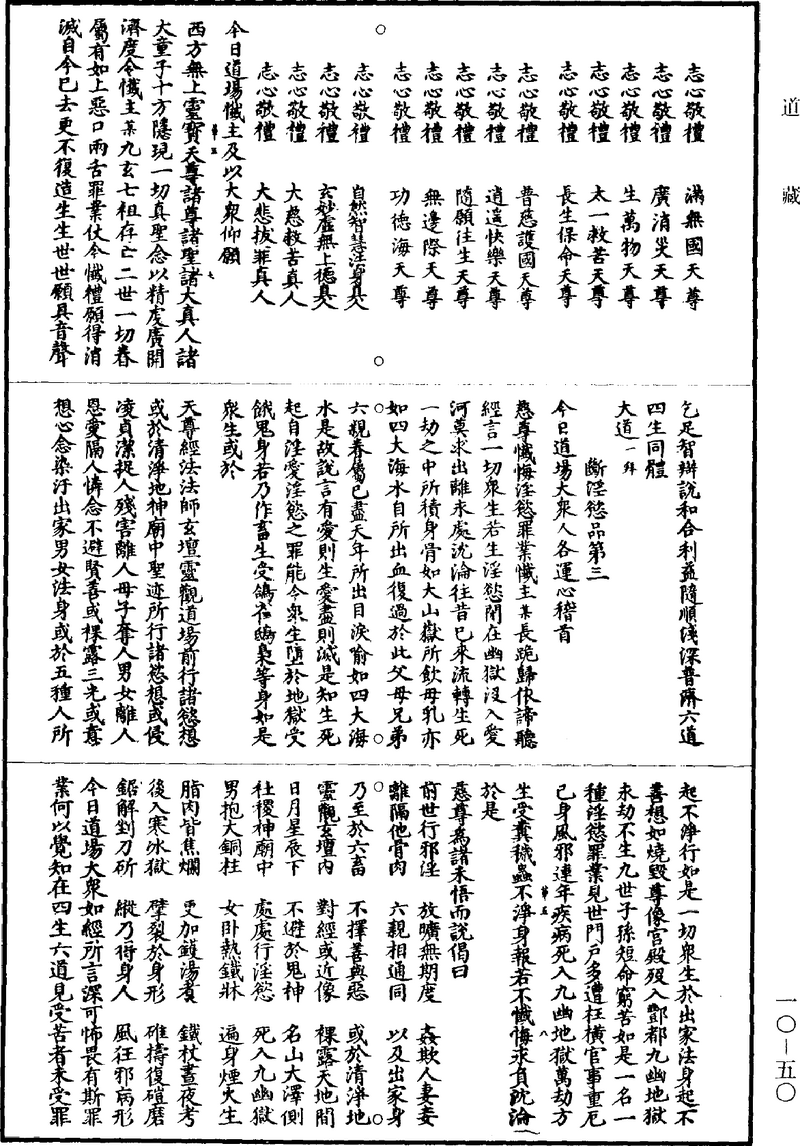 道藏
志心敬禮　滿無國天尊
志心敬禮　廣消災天尊
志心敬禮　生萬物天尊
志心敬禮　太一救苦天尊
志心敬禮　長生保命天尊
志心敬禮　普慈護國天尊
志心敬禮　逍遥快樂天尊
志心敬禮　隨願往生天尊
志心敬禮　無邊際天尊
志心敬禮　功德海天尊
志心敬禮　自然智慧法身真人
志心敬禮　玄妙虛無上德真人
志心敬禮　大慈救苦真人
志心敬禮　大悲拔罪真人
今日道場懺主及以大衆仰願
西方無上靈寶天尊諸尊諸聖諸大真人諸
大童子十方隱現一切真聖念以精虔廣開
濟度令懺主某九玄七祖存亡二世一切眷
屬有如上惡口兩舌罪業仗今懺禮願得消
滅自今已去更不復造生生世世願具音聲
乞足智辯說和合利益隨順淺深普濟六道
四生同體
大道一拜
斷淫慾品第三
今日道場大衆人各運心稽首
慈尊懺悔淫慾罪業懺主某長跪歸依諦聽
經言一切衆生若生淫慾閉在幽獄沒入愛
河莫求出離未處沈淪往昔已來流轉生死
一劫之中所積身骨如大山嶽所飲母乳亦
如四大海水自所出血復過於此父母兄弟
六親眷屬已盡天年所出目淚喻如四大海
水是故說言有愛則生愛盡則滅是知生死
起自淫愛淫慾之罪能令衆生墮於地獄受
餓鬼身若乃作畜生受鴿雀鴟梟等身如是
衆生或於
天尊經法法師玄壇靈觀道場前行諸慾想
或於清淨地神廟中聖迹所行諸慾想或侵
凌貞潔捉人殘害離人母子奪人男女離人
恩愛隔人憐念不避賢善或裸露三光或意
想心念染汙出家男女法身或於五種人所
起不淨行如是一切衆生於出家法身起不
善想如燒毀尊像宮殿殁入酆都九幽地獄
永劫不生九世子孫短命窮苦如是一名一
種淫慾罪業見世門戶多遭枉橫官事重厄
已身風邪連年疾病死入九幽地獄萬劫方
生受糞穢蟲不淨身報若不懺悔求負沈淪
於是
慈尊為諸未悟而說偈曰
前世行邪淫　放曠無期度　姦欺人妻妾
離隔他骨肉　六親相通同　以及出家身
乃至於六畜　不擇善與惡　或於清淨地
靈觀玄壇內　對經或近像　裸露天地間
日月星辰下　不避於鬼神　名山大澤側
社稷神廟中　處處行淫慾　死入九幽獄
男抱大銅柱　女卧熱鐵牀　遍身煙火生
脂肉皆焦爛　更加鑊湯煑　鐵杖晝夜考
後入寒冰獄　擘裂於身形　碓擣復磑磨
鋸解剉刀斫　縱乃得身人　風狂邪病形
今日道場大衆如經所言深可怖畏有斯罪
業何以覺知在四生六道見受苦者未受罪
一〇—五〇